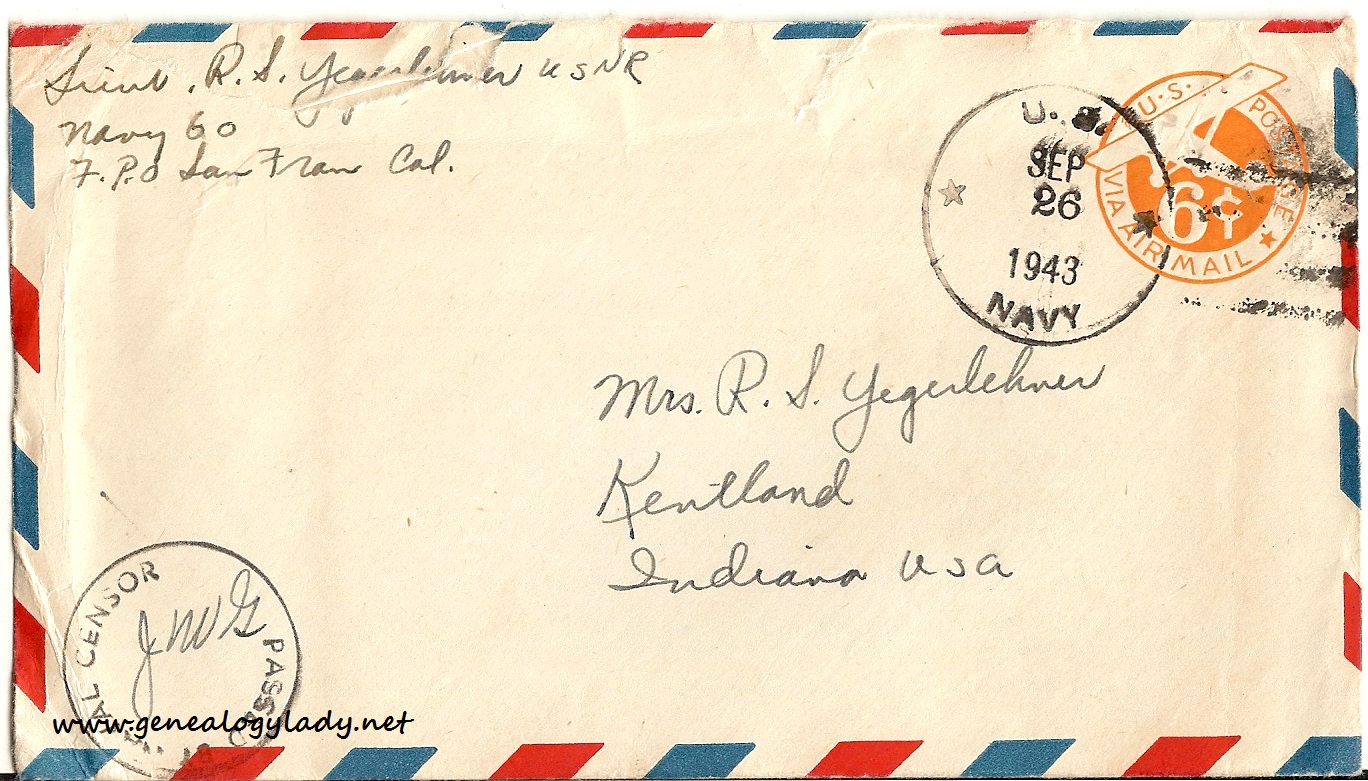 Lieut. R. S. Yegerlehner USNR
Navy 60
F.P.O San Fran Cal.
U.S.
SEP
26
1943
NAVY
U.S. POSTAGE
6¢
VIA AIR MAIL
Mrs. R. S. Yegerlehner
Kentland
Indiana USA
PASSED BY NAVAL CENSOR
JWG
www.genealogylady.net